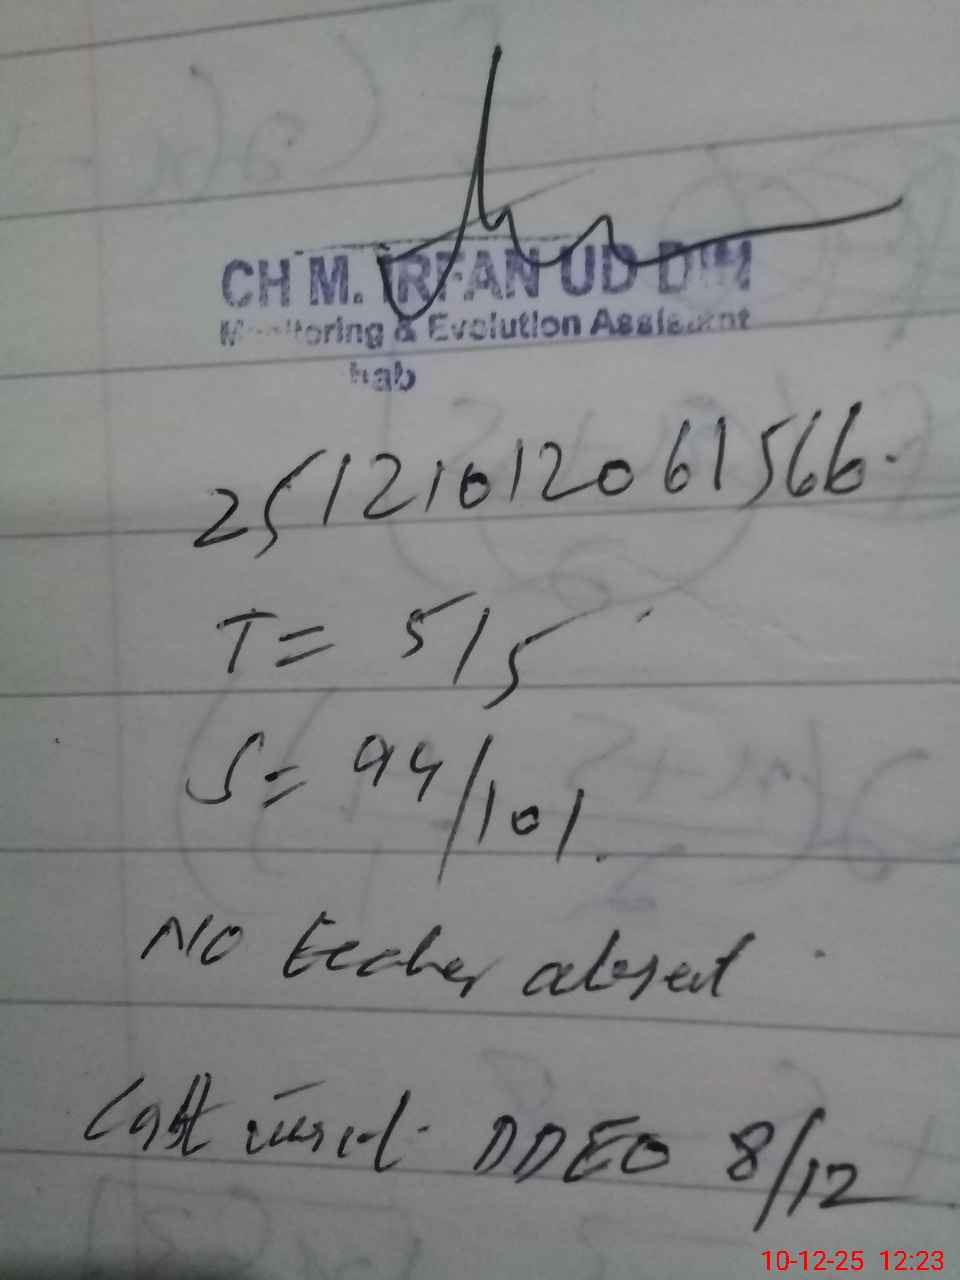 CH M. IRFAN UD DIN
Monitoring & Evolution Assistant
25121012061566.
T = 5/5
S = 94/101.
No teacher absent
Last visit. DDEO 8/12
10-12-25 12:23